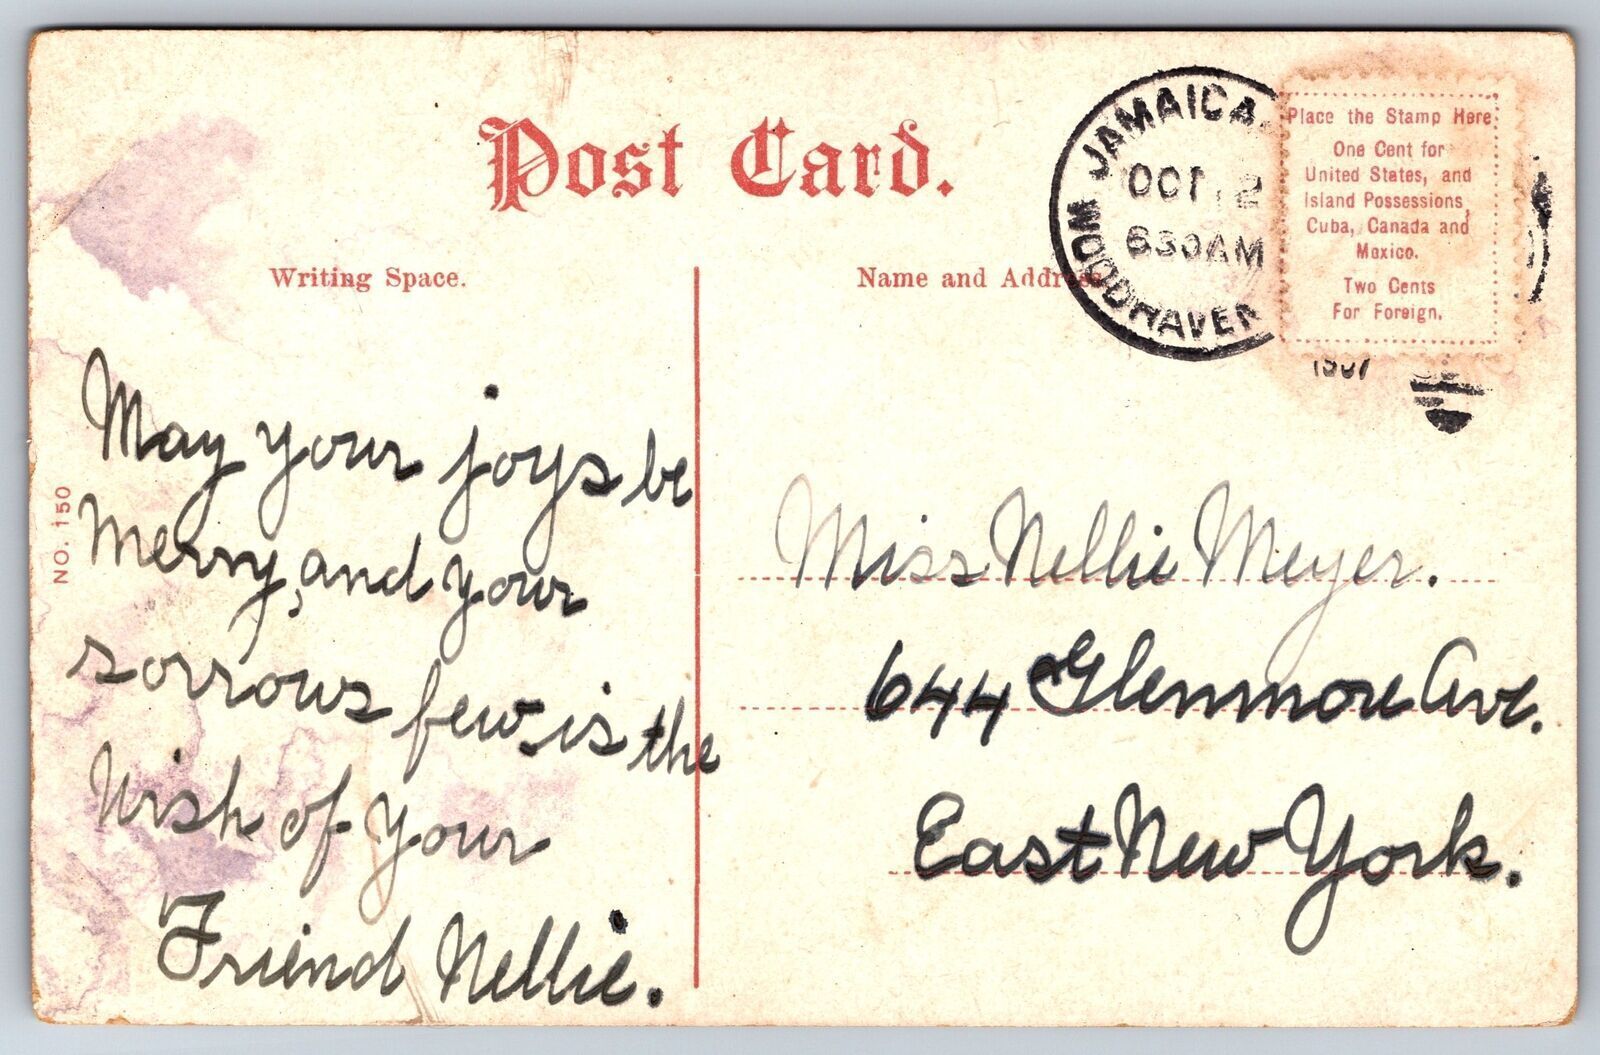 Post Card.
Writing Space.
Name and Address
JAMAICA
OCT 12
630AM
WOODHAVEN
Place the Stamp Here
One Cent for
United States, and
Island Possessions,
Cuba, Canada and
Mexico.
Two Cents
For Foreign.
NO. 150
May your joys be
Merry, and your
sorrows few is the
Wish of Your
Friend Nellie.
Miss Nellie Meyer.
644 Glenmore Ave.
East New York.